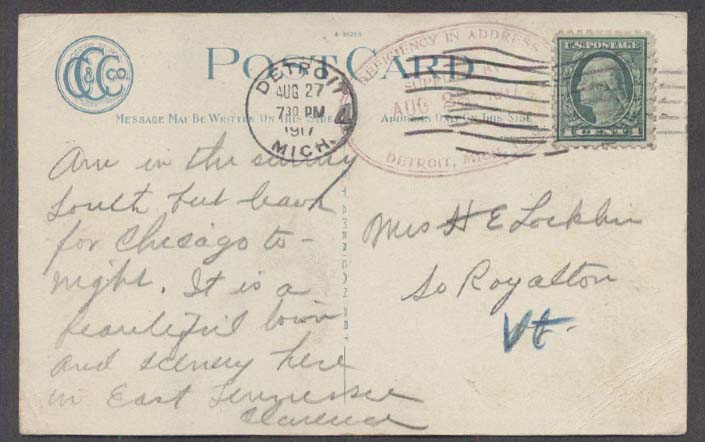 A-16255
CCC&Co.
POST CARD
MESSAGE MAY BE WRITTEN ON THIS SIDE
ADDRESS ONLY ON THIS SIDE
DETROIT
AUG 27
730 PM
1917
MICH.
4
DEFICIENCY IN ADDRESS
SUPPLIED BY
AUG 1917
DETROIT, MICH.
U.S. POSTAGE
1 CENT 1
Am in the sunny
South but leave
for Chicago to-
night. It is a
beautiful town
and scenery here
in East Tennessee
Clarence
Mrs H E Locklin
So Royalton
Vt.